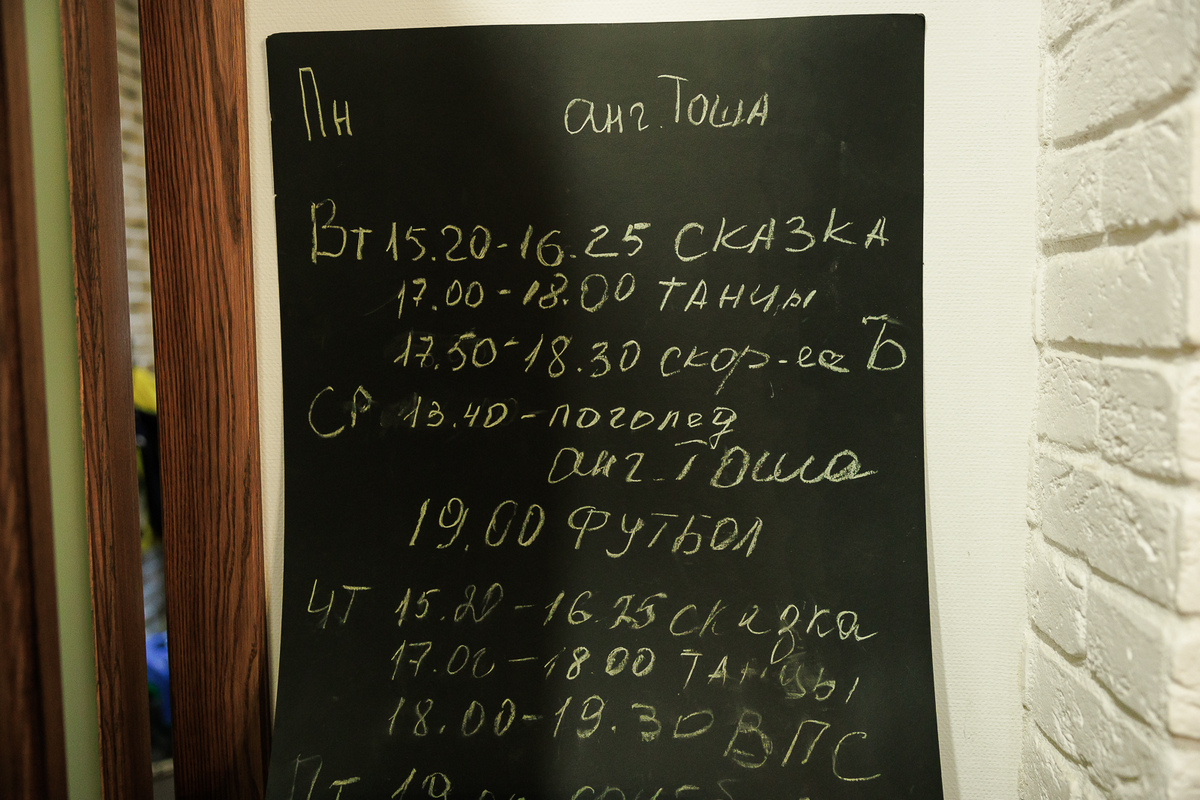 Пн анг. Тоша
Вт 15.20-16.25 СКАЗКА
17.00-18.00 ТАНЦЫ
17.50-18.30 скор-ее Б
СР 13.40-логопед
анг. Тоша
19.00 ФУТБОЛ
ЧТ 15.20-16.25 сказка
17.00-18.00 ТАНЦЫ
18.00-19.30 ВПС
Пт